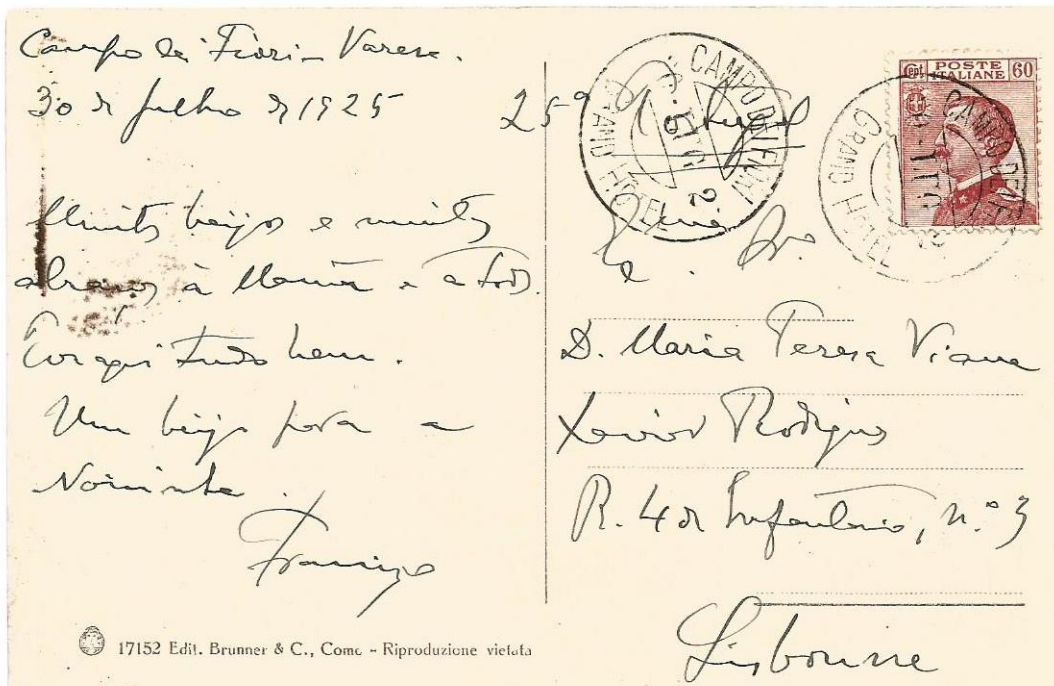 Campo dei Fiori - Varese.
30 de Julho de 1925
25º
Muitos beijos e muitos
abraços à Mamã e a todos.
Por aqui tudo bem.
Um beijo para a
Noivinha.
Francisco
17152 Edit. Brunner & C., Como - Riproduzione vietata
CAMPO DEI FIORI
GRAND HOTEL
POSTE
ITALIANE 60
CAMPO DEI FIORI
GRAND HOTEL
D. Maria Teresa Viana
Xavier Rodrigues
R. 4 de Infantaria, n.º 3
Lisbonne